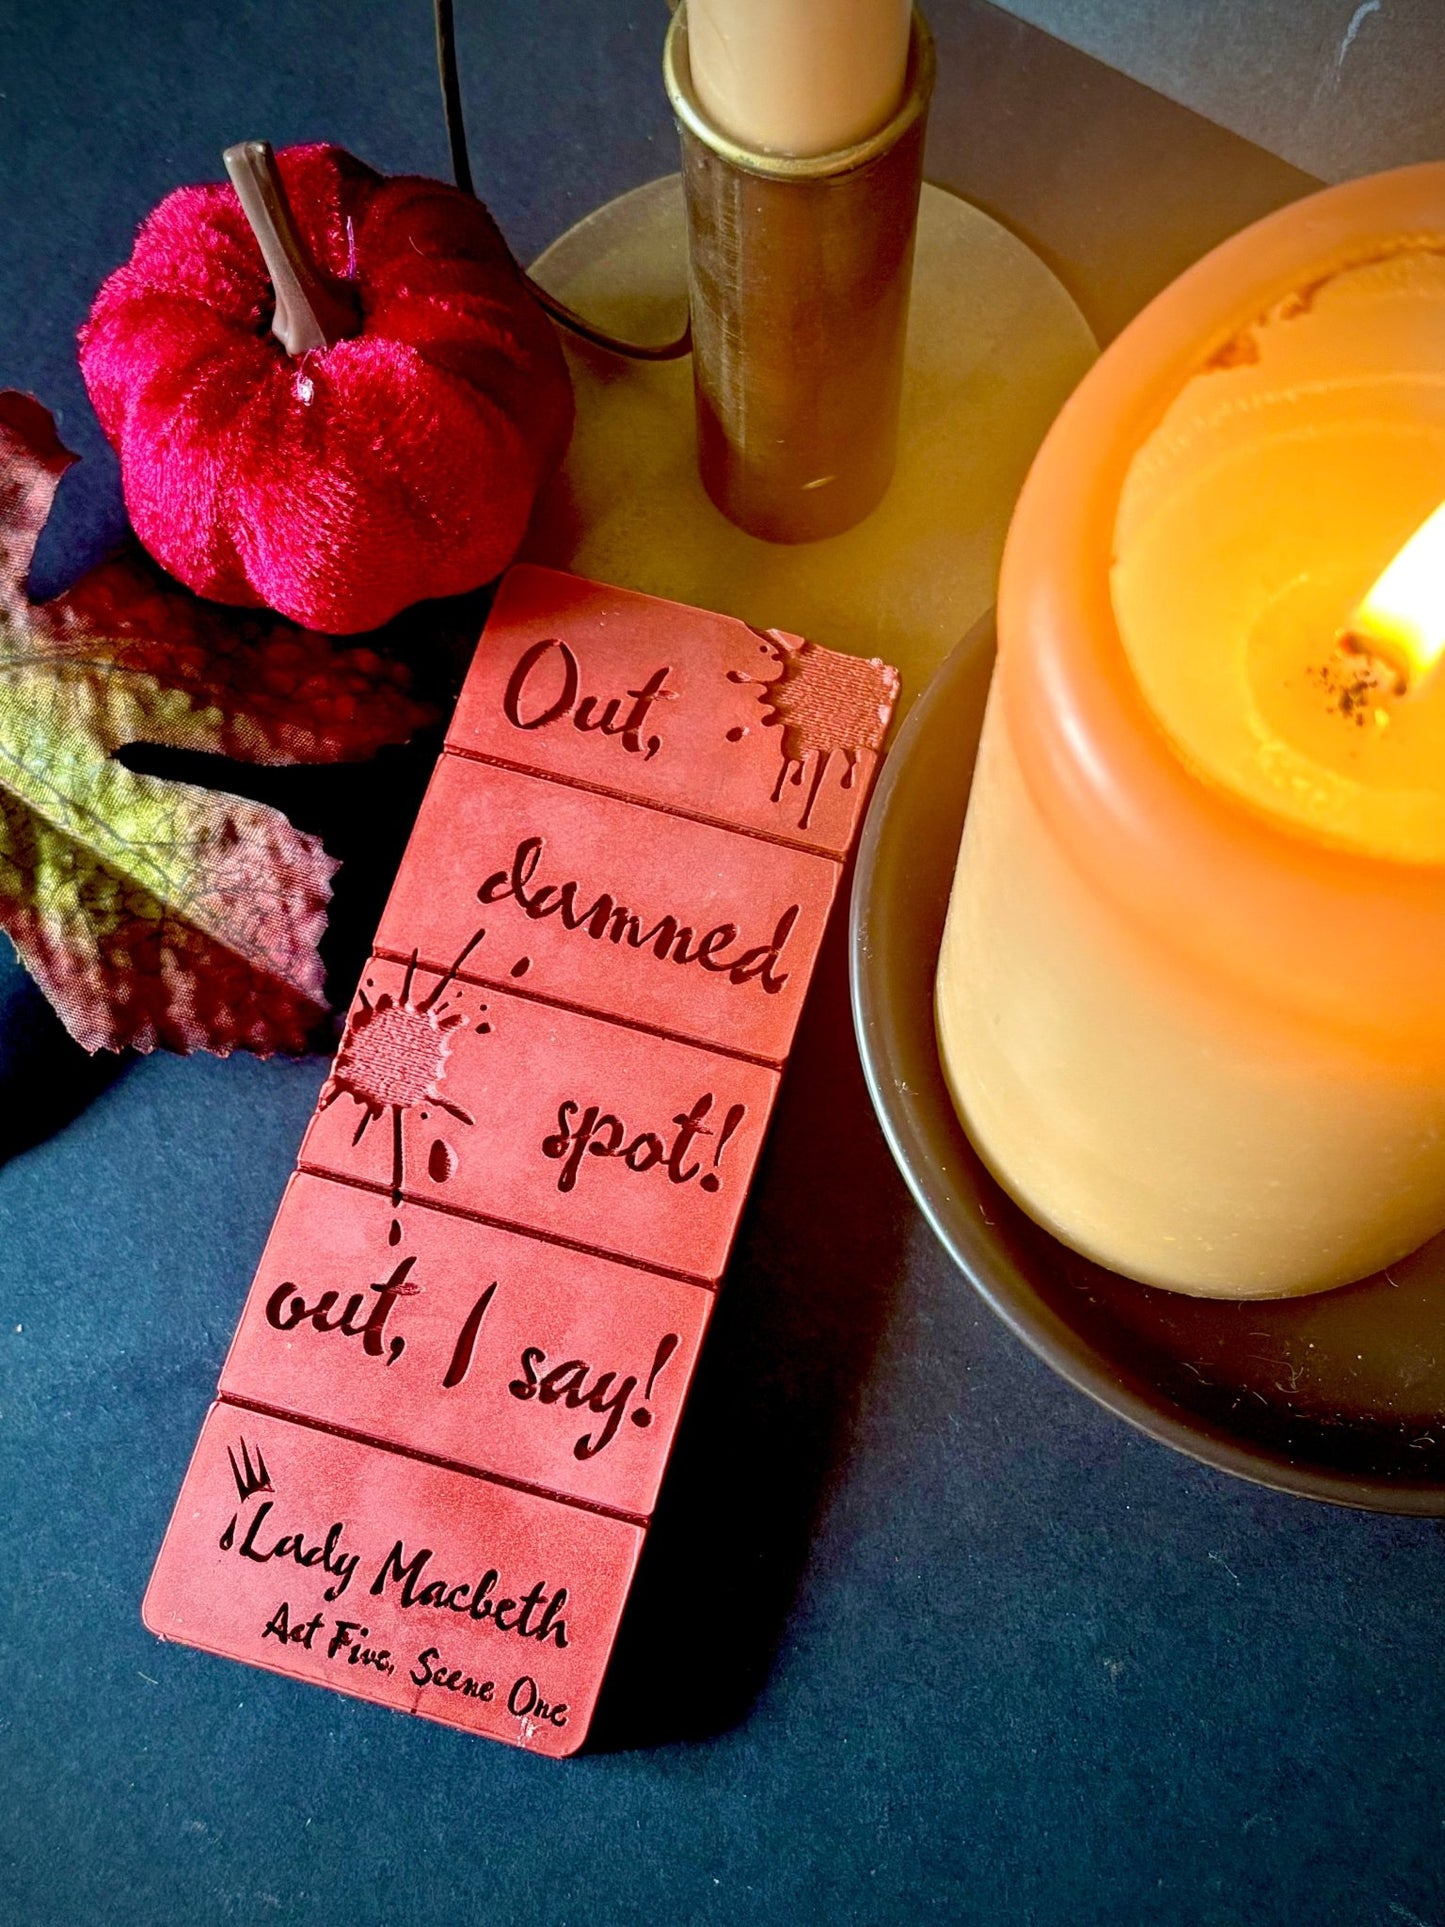 Out,
damned
spot!
out, I say!
Lady Macbeth
Act Five, Scene One